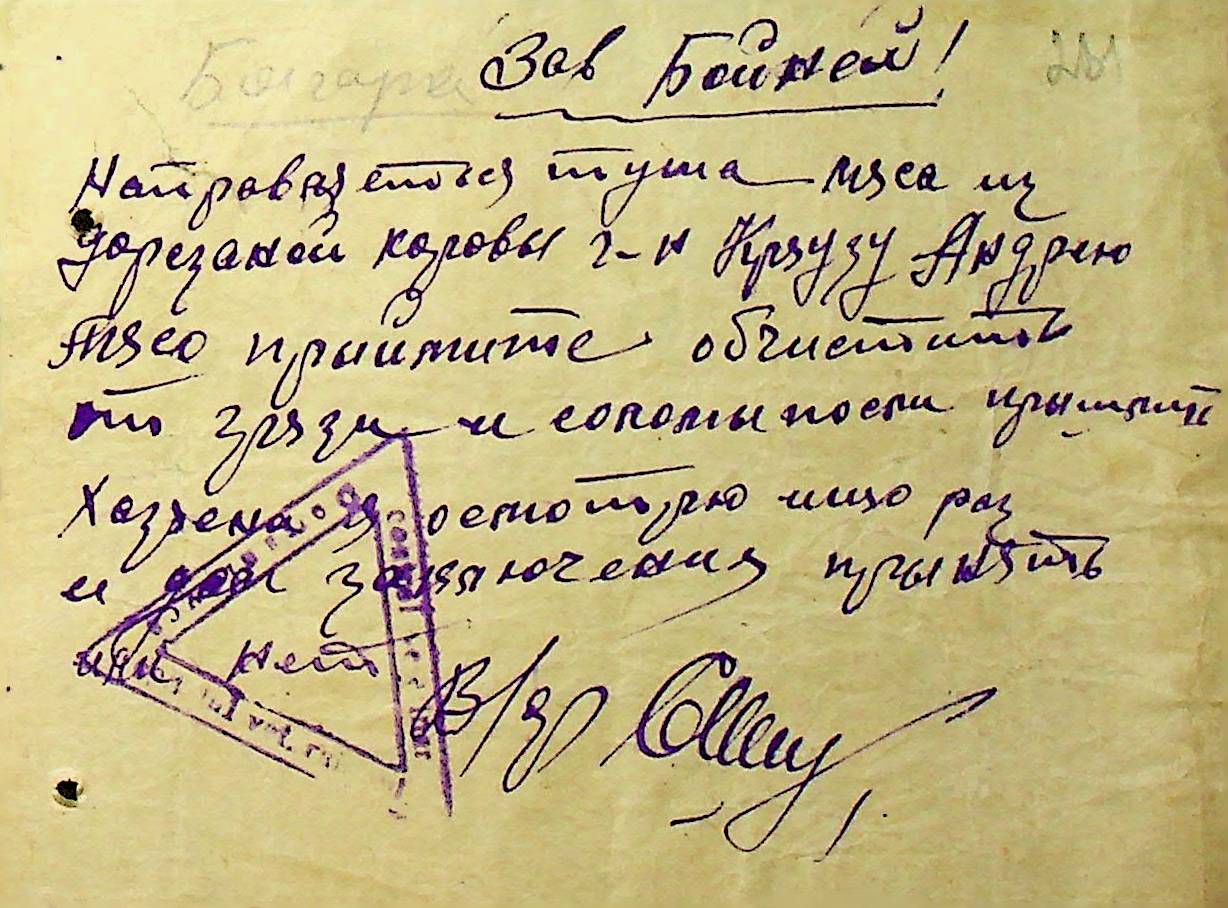 Болгара Зав Бойней! 281
Направляется туша мяса из
дорезаной коровы г-н Краузу Андрею
Мясо прыймите обчистить
от грязи и соломы посли прыйдит
Хазяена я осмотрю ищо раз
и дам заключения прынять
или нет
В/др